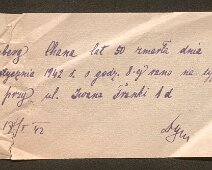 berg Chana lat 50 zmarła dnia
stycznia 1942 r. o godz. 8-ej rano na
przy ul. Iwana Franki 1 d
I 42